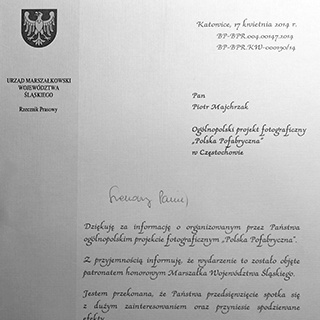 Katowice, 17 kwietnia 2014 r.
BP-BPR.004.00147.2014
BP-BPR.KW-00030/14
URZĄD MARSZAŁKOWSKI
WOJEWÓDZTWA
ŚLĄSKIEGO
Rzecznik Prasowy
Pan
Piotr Majchrzak
Ogólnopolski projekt fotograficzny
„Polska Pofabryczna”
w Częstochowie
Szanowny Panie,
Dziękuję za informację o organizowanym przez Państwa
ogólnopolskim projekcie fotograficznym „Polska Pofabryczna”.
Z przyjemnością informuję, że wydarzenie to zostało objęte
patronatem honorowym Marszałka Województwa Śląskiego.
Jestem przekonana, że Państwa przedsięwzięcie spotka się
z dużym zainteresowaniem oraz przyniesie spodziewane
efekty.